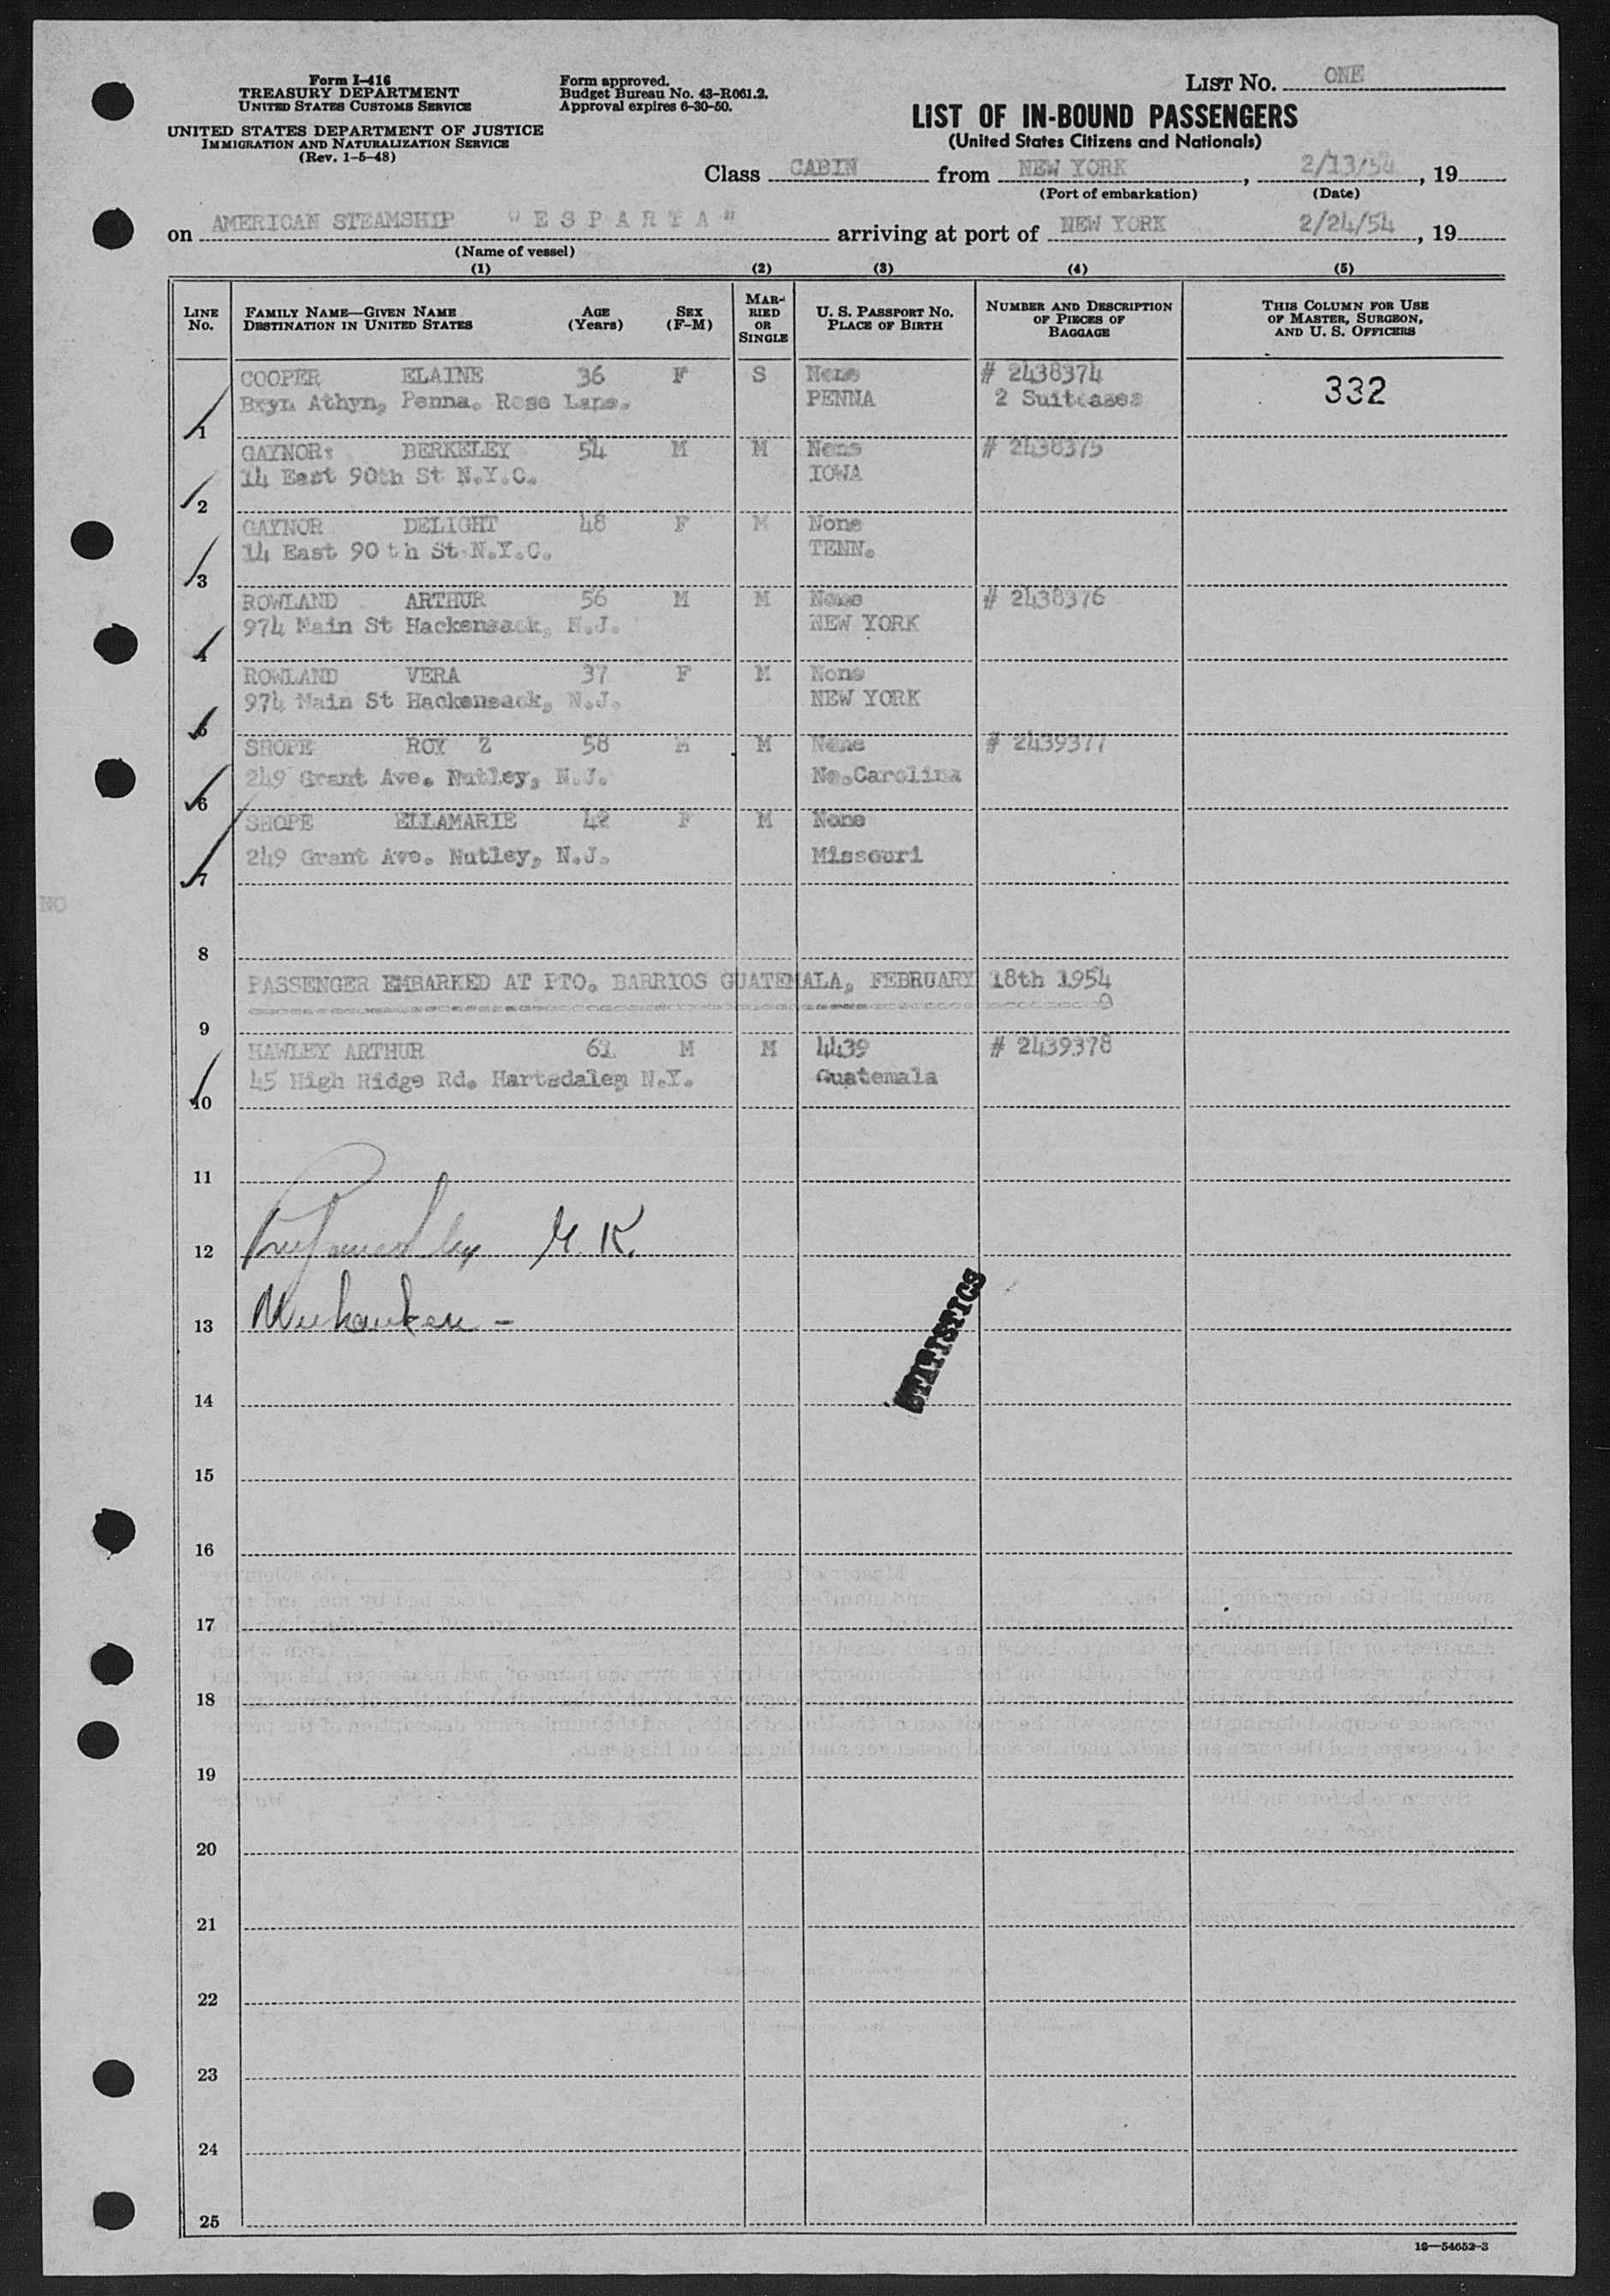 Form I-416
TREASURY DEPARTMENT
UNITED STATES CUSTOMS SERVICE
UNITED STATES DEPARTMENT OF JUSTICE
IMMIGRATION AND NATURALIZATION SERVICE
(Rev. 1-5-48)
Form approved.
Budget Bureau No. 43-R061.2.
Approval expires 6-30-50.
LIST No. ONE
LIST OF IN-BOUND PASSENGERS
(United States Citizens and Nationals)
Class CABIN from NEW YORK, 2/13/54, 19
(Port of embarkation) (Date)
on AMERICAN STEAMSHIP "ESPARTA" arriving at port of NEW YORK 2/24/54, 19
(Name of vessel)
(1) (2) (3) (4) (5)
LINE No. FAMILY NAME—GIVEN NAME DESTINATION IN UNITED STATES AGE (Years) SEX (F-M) MARRIED OR SINGLE U. S. PASSPORT No. PLACE OF BIRTH NUMBER AND DESCRIPTION OF PIECES OF BAGGAGE THIS COLUMN FOR USE OF MASTER, SURGEON, AND U. S. OFFICERS
COOPER ELAINE 36 F S None # 2438374 332
1 Bryn Athyn, Penna. Rose Lane. PENNA 2 Suitcases
GAYNOR: BERKELEY 54 M M None # 2438375
2 14 East 90th St N.Y.C. IOWA
GAYNOR DELIGHT 48 F M None
3 14 East 90th St N.Y.C. TENN.
ROWLAND ARTHUR 56 M M None # 2438376
4 974 Main St Hackensack, N.J. NEW YORK
ROWLAND VERA 37 F M None
5 974 Main St Hackensack, N.J. NEW YORK
SHOPE ROY Z 58 M M None # 2439377
6 249 Grant Ave. Nutley, N.J. No.Carolina
SHOPE ELLAMARIE 42 F M None
7 249 Grant Ave. Nutley, N.J. Missouri
8
PASSENGER EMBARKED AT PTO. BARRIOS GUATEMALA, FEBRUARY 18th 1954
9
HAWLEY ARTHUR 61 M M 4439 # 2439378
10 45 High Ridge Rd. Hartsdalem N.Y. Guatemala
11
12
13 Weehawken -
STATISTICS
14
15
16
17
18
19
20
21
22
23
24
25
16—54652-3